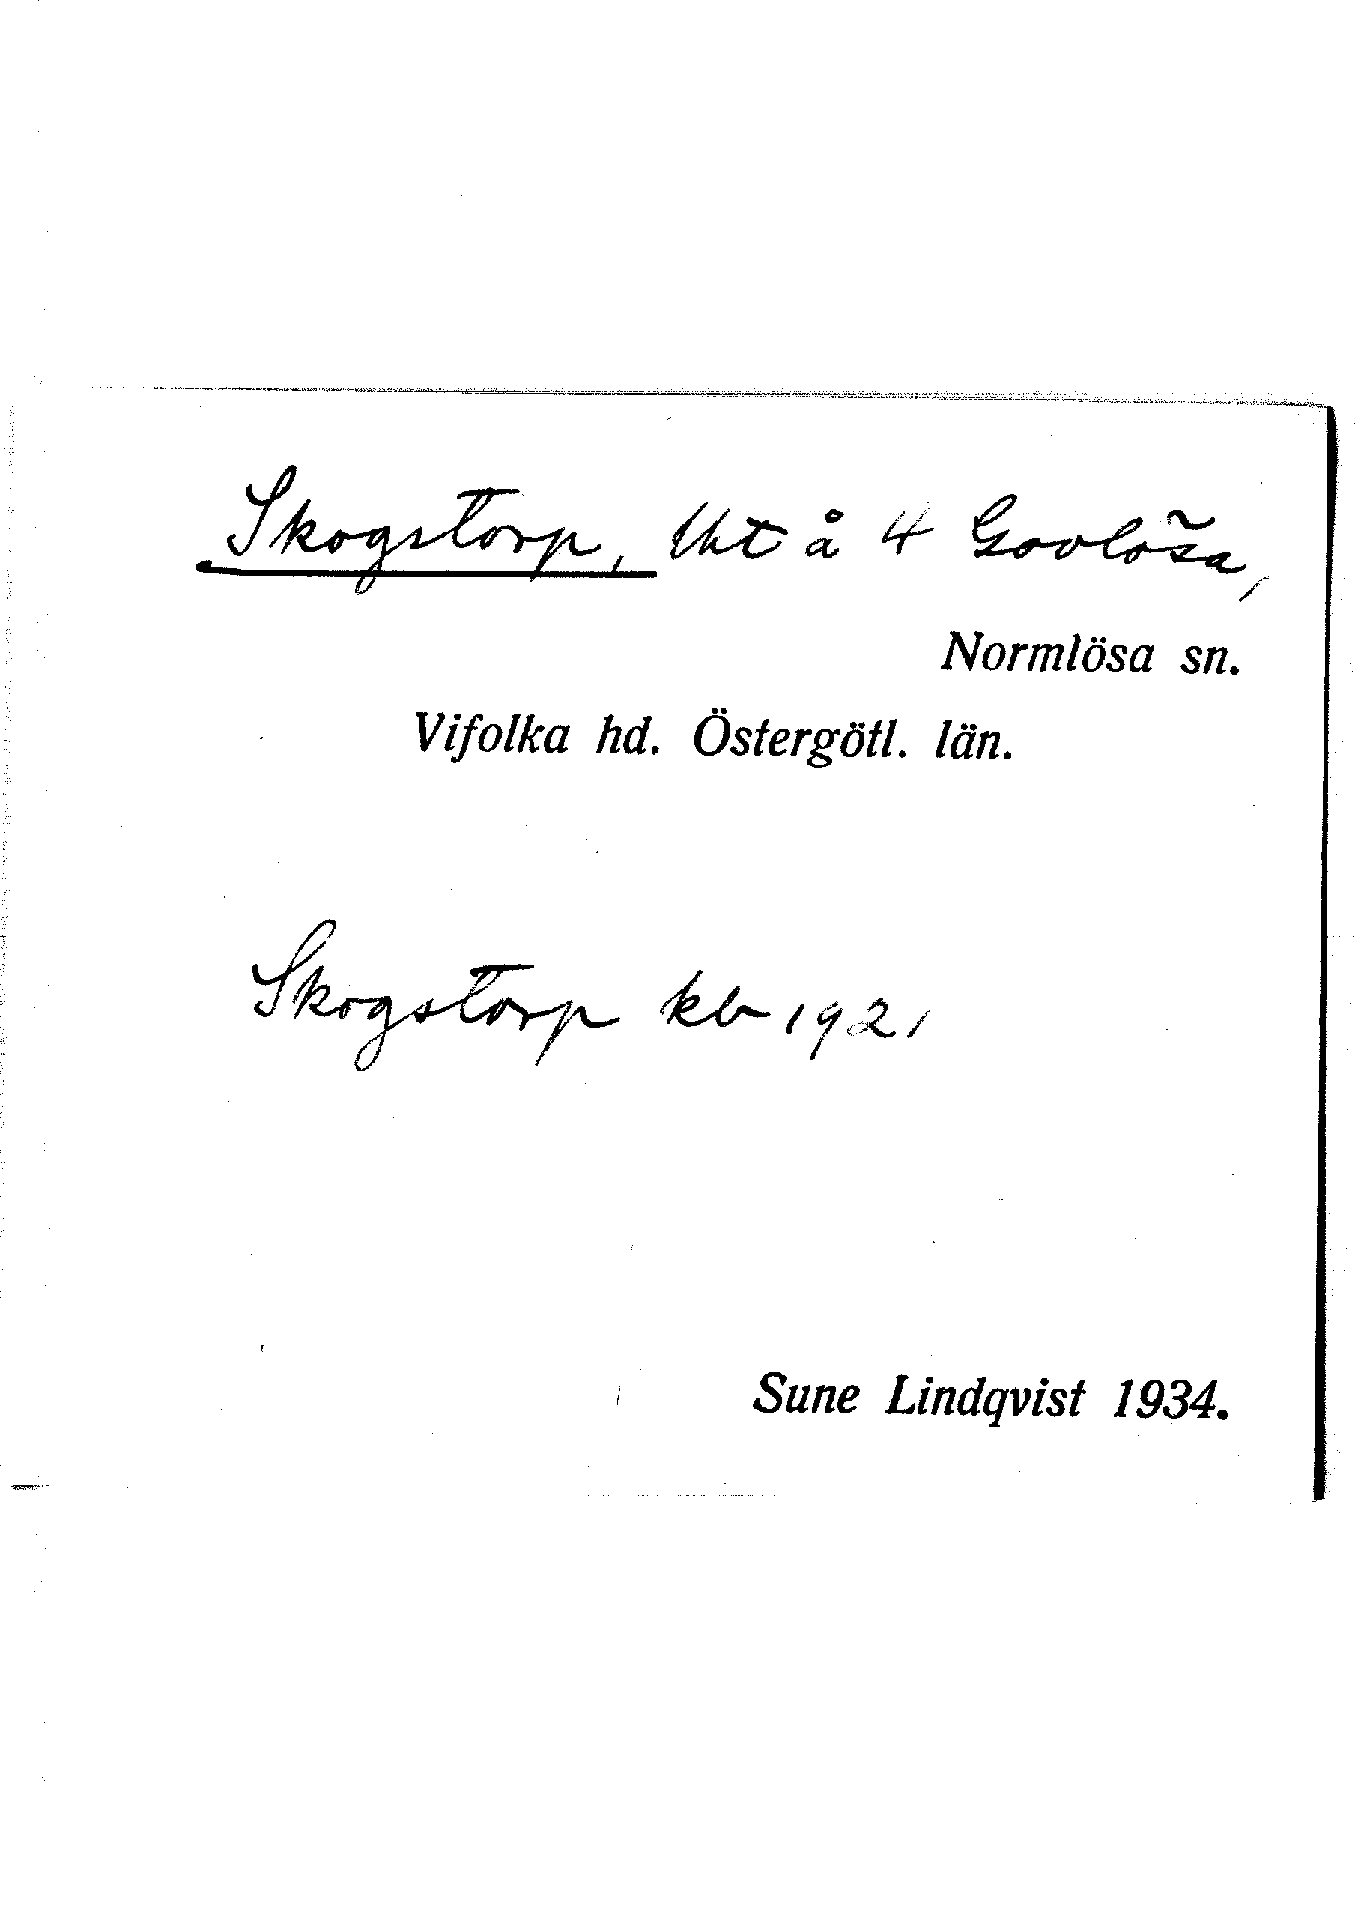 Skogstorp, lht å 4 Govlösa,
Normlösa sn.
Vifolka hd. Östergötl. län.
Skogstorp kb 1921
Sune Lindqvist 1934.